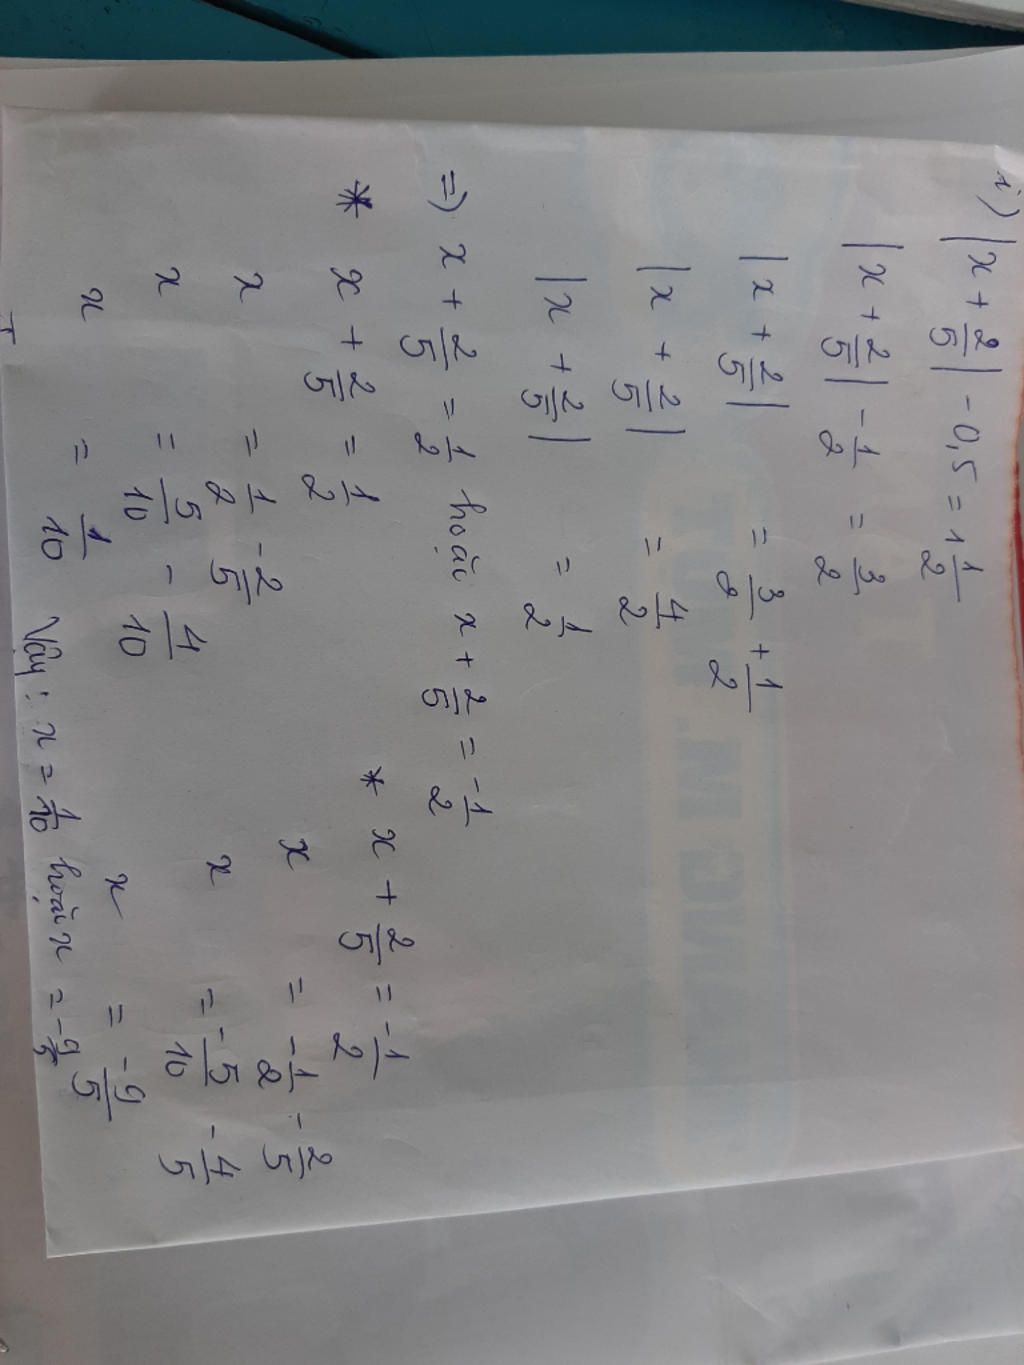 i) |x + 2/5| - 0,5 = 1 1/2
|x + 2/5| - 1/2 = 3/2
|x + 2/5| = 3/2 + 1/2
|x + 2/5| = 4/2
|x + 2/5| = 1/2
=) x + 2/5 = 1/2 hoặc x + 2/5 = -1/2
* x + 2/5 = 1/2
x = 1/2 - 2/5
x = 5/10 - 4/10
x = 1/10
* x + 2/5 = -1/2
x = -1/2 - 2/5
x = -5/10 - 4/5
x = -9/5
Vậy: x = 1/10 hoặc x = -9/5